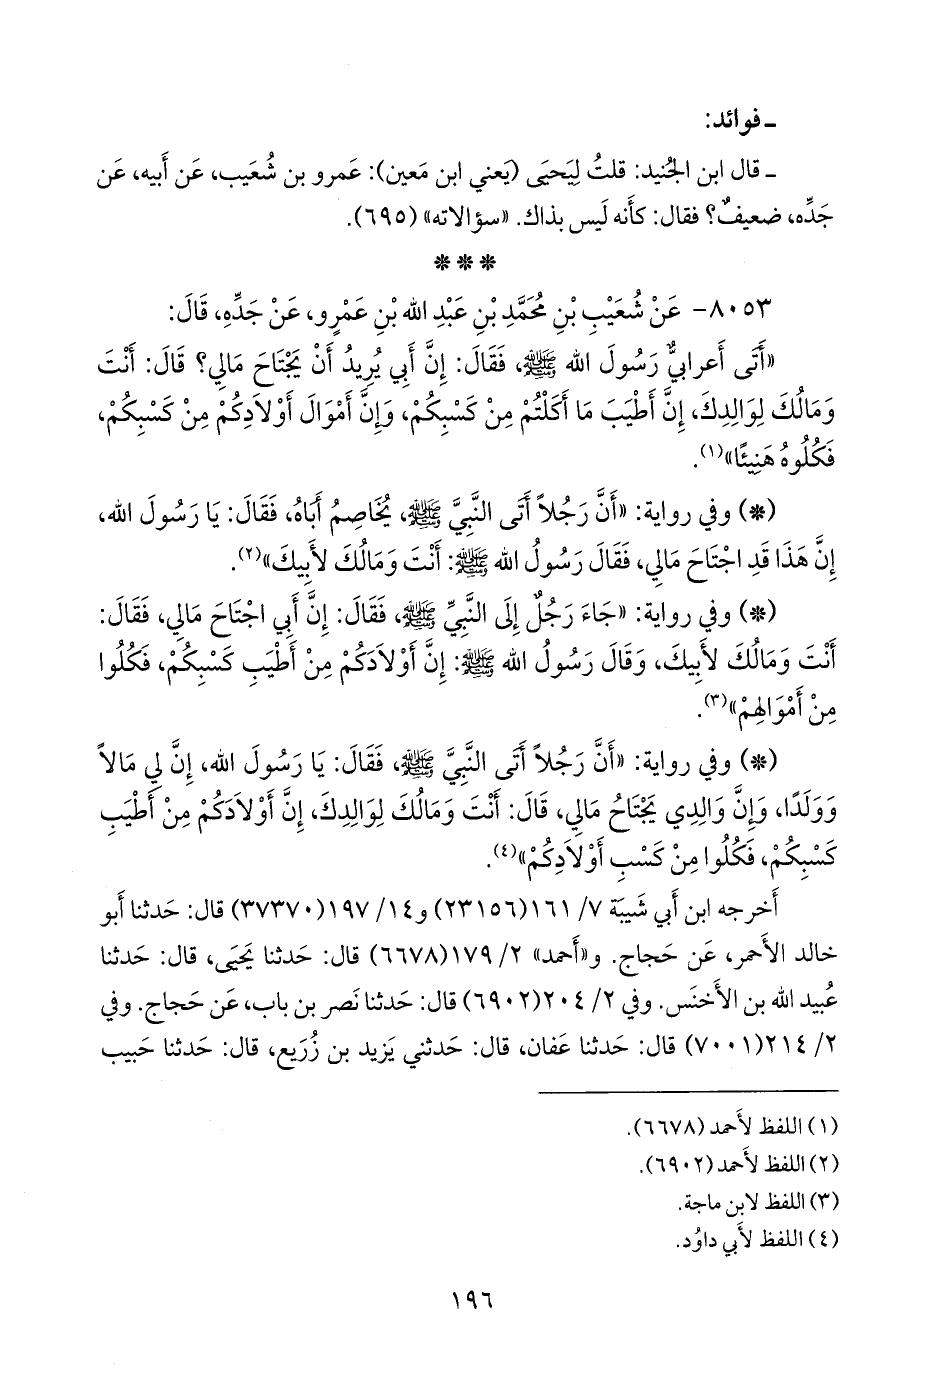 ـ فوائد:
ـ قال ابن الجُنيد: قلتُ لِيَحيَى (يَعني ابن مَعين): عَمرو بن شُعَيب، عَن أَبيه، عَن
جَدِّه، ضعيفٌ؟ فقال: كأَنه لَيس بذاك. «سؤالاته» (٦٩٥).
* * *
٨٠٥٣- عَنْ شُعَيْبِ بْنِ مُحَمَّدِ بْنِ عَبْدِ الله بْنِ عَمْرٍو، عَنْ جَدِّهِ، قَالَ:
«أَتَى أَعرابيٌّ رَسُولَ الله ﷺ، فَقَالَ: إِنَّ أَبِي يُرِيدُ أَنْ يَجْتَاحَ مَالِي؟ قَالَ: أَنْتَ
وَمَالُكَ لِوَالِدِكَ، إِنَّ أَطْيَبَ مَا أَكَلْتُمْ مِنْ كَسْبِكُمْ، وَإِنَّ أَمْوَالَ أَوْلَادِكُمْ مِنْ كَسْبِكُمْ،
فَكُلُوهُ هَنِيئًا»(١).
(*) وفي رواية: «أَنَّ رَجُلاً أَتَى النَّبِيَّ ﷺ، يُخَاصِمُ أَبَاهُ، فَقَالَ: يَا رَسُولَ الله،
إِنَّ هَذَا قَدِ اجْتَاحَ مَالِي، فَقَالَ رَسُولُ الله ﷺ: أَنْتَ وَمَالُكَ لأَبِيكَ»(٢).
(*) وفي رواية: «جَاءَ رَجُلٌ إِلَى النَّبِيِّ ﷺ، فَقَالَ: إِنَّ أَبِي اجْتَاحَ مَالِي، فَقَالَ:
أَنْتَ وَمَالُكَ لأَبِيكَ، وَقَالَ رَسُولُ الله ﷺ: إِنَّ أَوْلَادَكُمْ مِنْ أَطْيَبِ كَسْبِكُمْ، فَكُلُوا
مِنْ أَمْوَالِهِمْ»(٣).
(*) وفي رواية: «أَنَّ رَجُلاً أَتَى النَّبِيَّ ﷺ، فَقَالَ: يَا رَسُولَ الله، إِنَّ لِي مَالاً
وَوَلَدًا، وَإِنَّ وَالِدِي يَجْتَاحُ مَالِي، قَالَ: أَنْتَ وَمَالُكَ لِوَالِدِكَ، إِنَّ أَوْلَادَكُمْ مِنْ أَطْيَبِ
كَسْبِكُمْ، فَكُلُوا مِنْ كَسْبِ أَوْلَادِكُمْ»(٤).
أَخرجه ابن أَبي شَيبَة ٧/ ١٦١(٢٣١٥٦) و١٤/ ١٩٧(٣٧٣٧٠) قال: حَدثنا أَبو
خالد الأَحمر، عَن حَجاج. و«أَحمد» ٢/ ١٧٩(٦٦٧٨) قال: حَدثنا يَحيَى، قال: حَدثنا
عُبيد الله بن الأَخنَس. وفي ٢/ ٢٠٤(٦٩٠٢) قال: حَدثنا نَصر بن باب، عَن حَجاج. وفي
٢/ ٢١٤(٧٠٠١) قال: حَدثنا عَفان، قال: حَدثني يَزيد بن زُرَيع، قال: حَدثنا حَبيب
(١) اللفظ لأَحمد (٦٦٧٨).
(٢) اللفظ لأَحمد (٦٩٠٢).
(٣) اللفظ لابن ماجة.
(٤) اللفظ لأَبي داوُد.
١٩٦